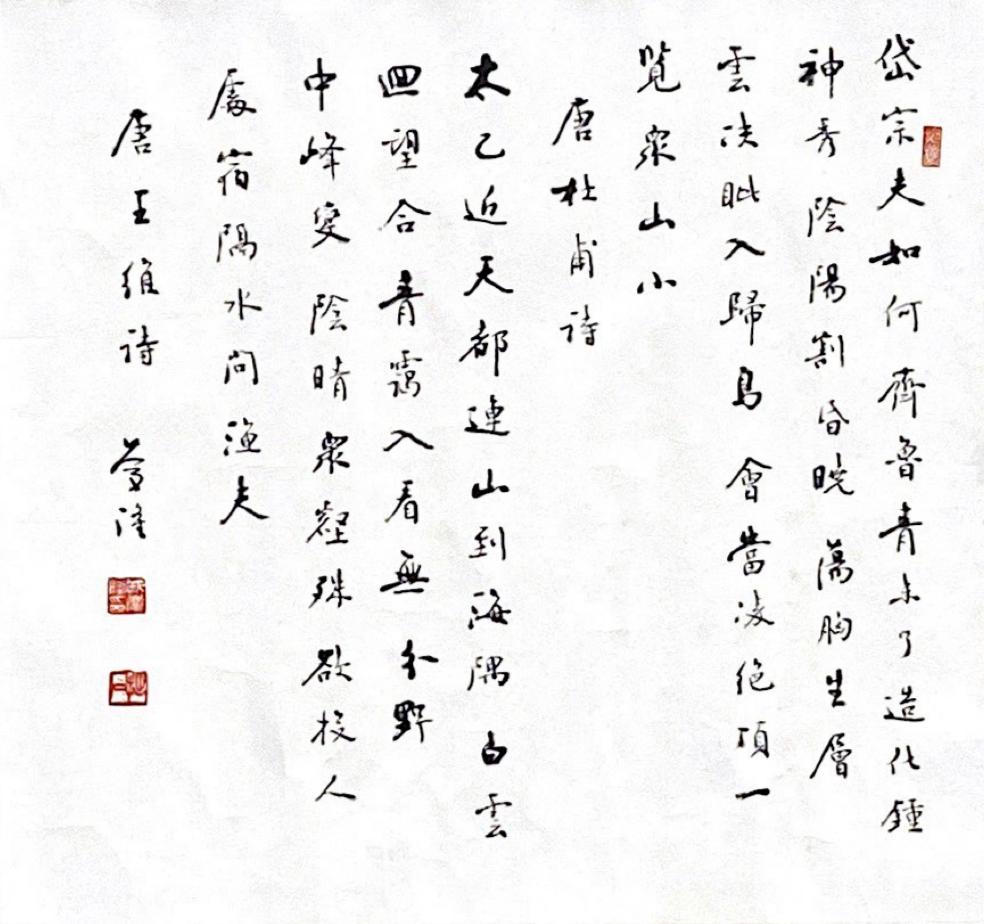 岱宗夫如何齊魯青未了造化鍾
神秀陰陽割昏曉蕩胸生層
雲決眦入歸鳥會當凌絕頂一
覽眾山小
唐杜甫詩
太乙近天都連山到海隅白雲
迴望合青靄入看無分野
中峰變陰晴眾壑殊欲投人
處宿隔水問漁夫
唐王維詩